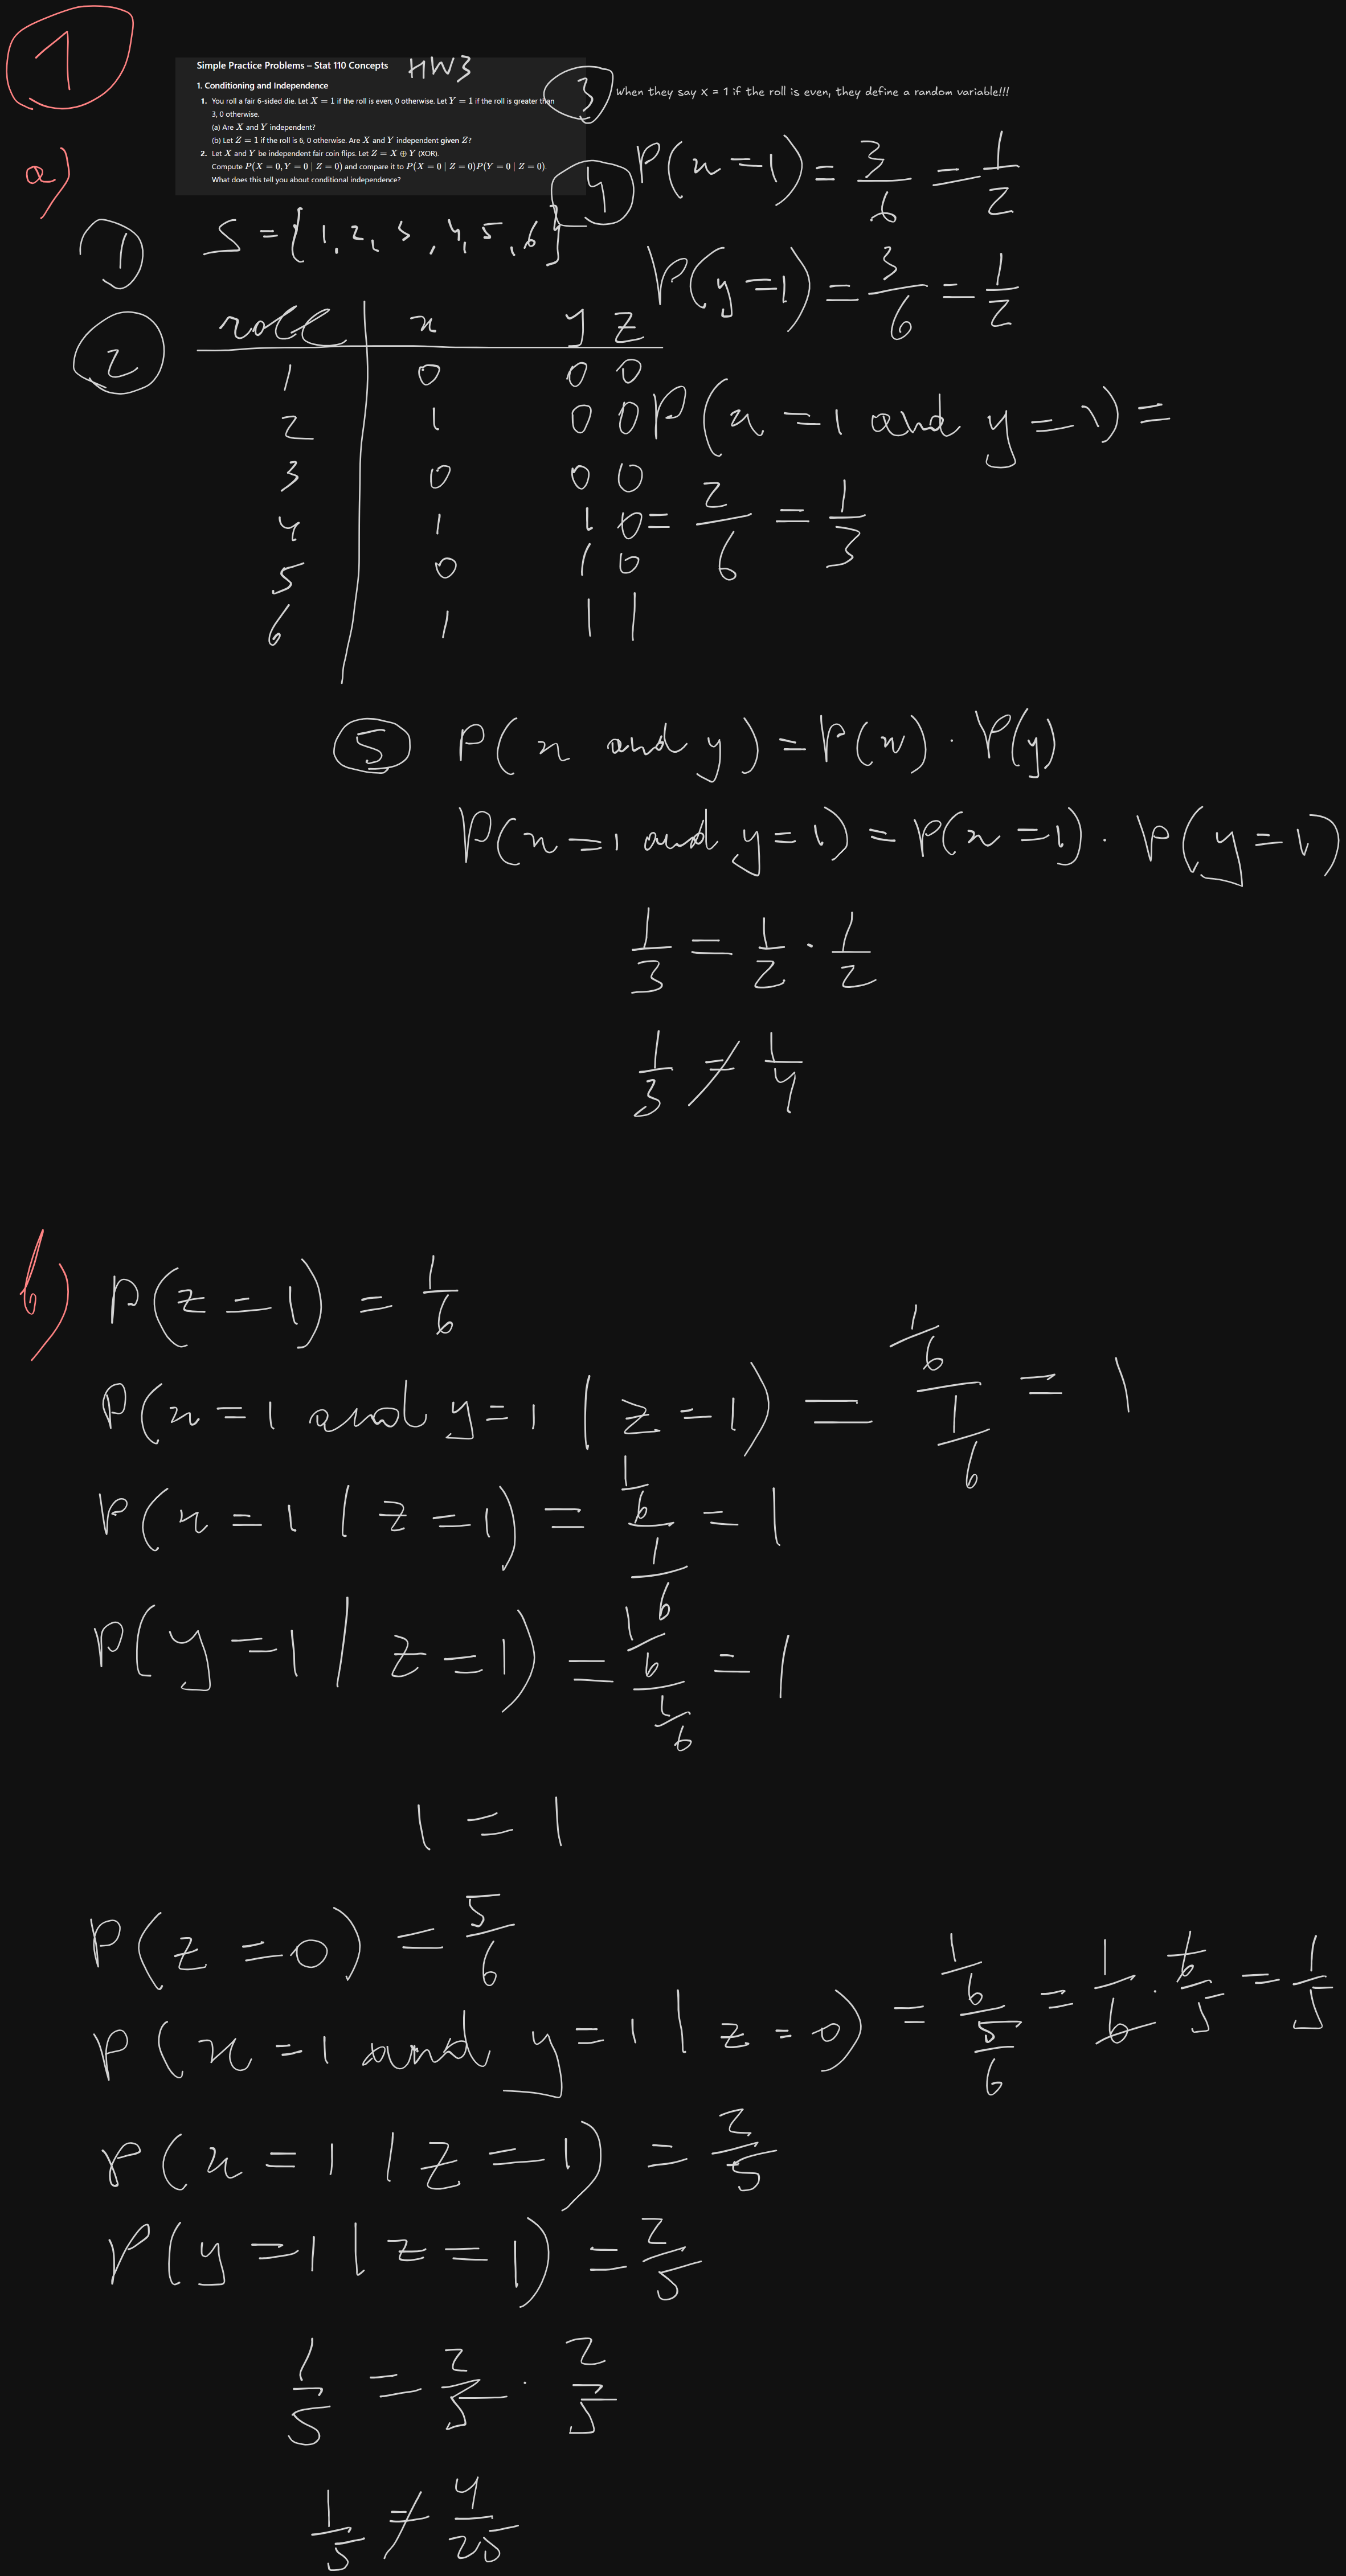 1
Simple Practice Problems – Stat 110 Concepts HW3
1. Conditioning and Independence
1. You roll a fair 6-sided die. Let X = 1 if the roll is even, 0 otherwise. Let Y = 1 if the roll is greater than
3, 0 otherwise.
(a) Are X and Y independent?
(b) Let Z = 1 if the roll is 6, 0 otherwise. Are X and Y independent given Z?
2. Let X and Y be independent fair coin flips. Let Z = X ⊕ Y (XOR).
Compute P(X = 0, Y = 0 | Z = 0) and compare it to P(X = 0 | Z = 0)P(Y = 0 | Z = 0).
What does this tell you about conditional independence?
a)
1 S = {1, 2, 3, 4, 5, 6}
2 roll x y z
1 0 0 0
2 1 0 0
3 0 0 0
4 1 1 0
5 0 1 0
6 1 1 1
3 When they say X = 1 if the roll is even, they define a random variable!!!
4 P(x=1) = 3/6 = 1/2
P(y=1) = 3/6 = 1/2
P(x=1 and y=1) =
= 2/6 = 1/3
5 P(x and y) = P(x) · P(y)
P(x=1 and y=1) = P(x=1) · P(y=1)
1/3 = 1/2 · 1/2
1/3 ≠ 1/4
b) P(z=1) = 1/6
P(x=1 and y=1 | z=1) = (1/6)/(1/6) = 1
P(x=1 | z=1) = (1/6)/(1/6) = 1
P(y=1 | z=1) = (1/6)/(1/6) = 1
1 = 1
P(z=0) = 5/6
P(x=1 and y=1 | z=0) = (1/6)/(5/6) = 1/6 · 6/5 = 1/5
P(x=1 | z=1) = 2/5
P(y=1 | z=1) = 2/5
1/5 = 2/5 · 2/5
1/5 ≠ 4/25